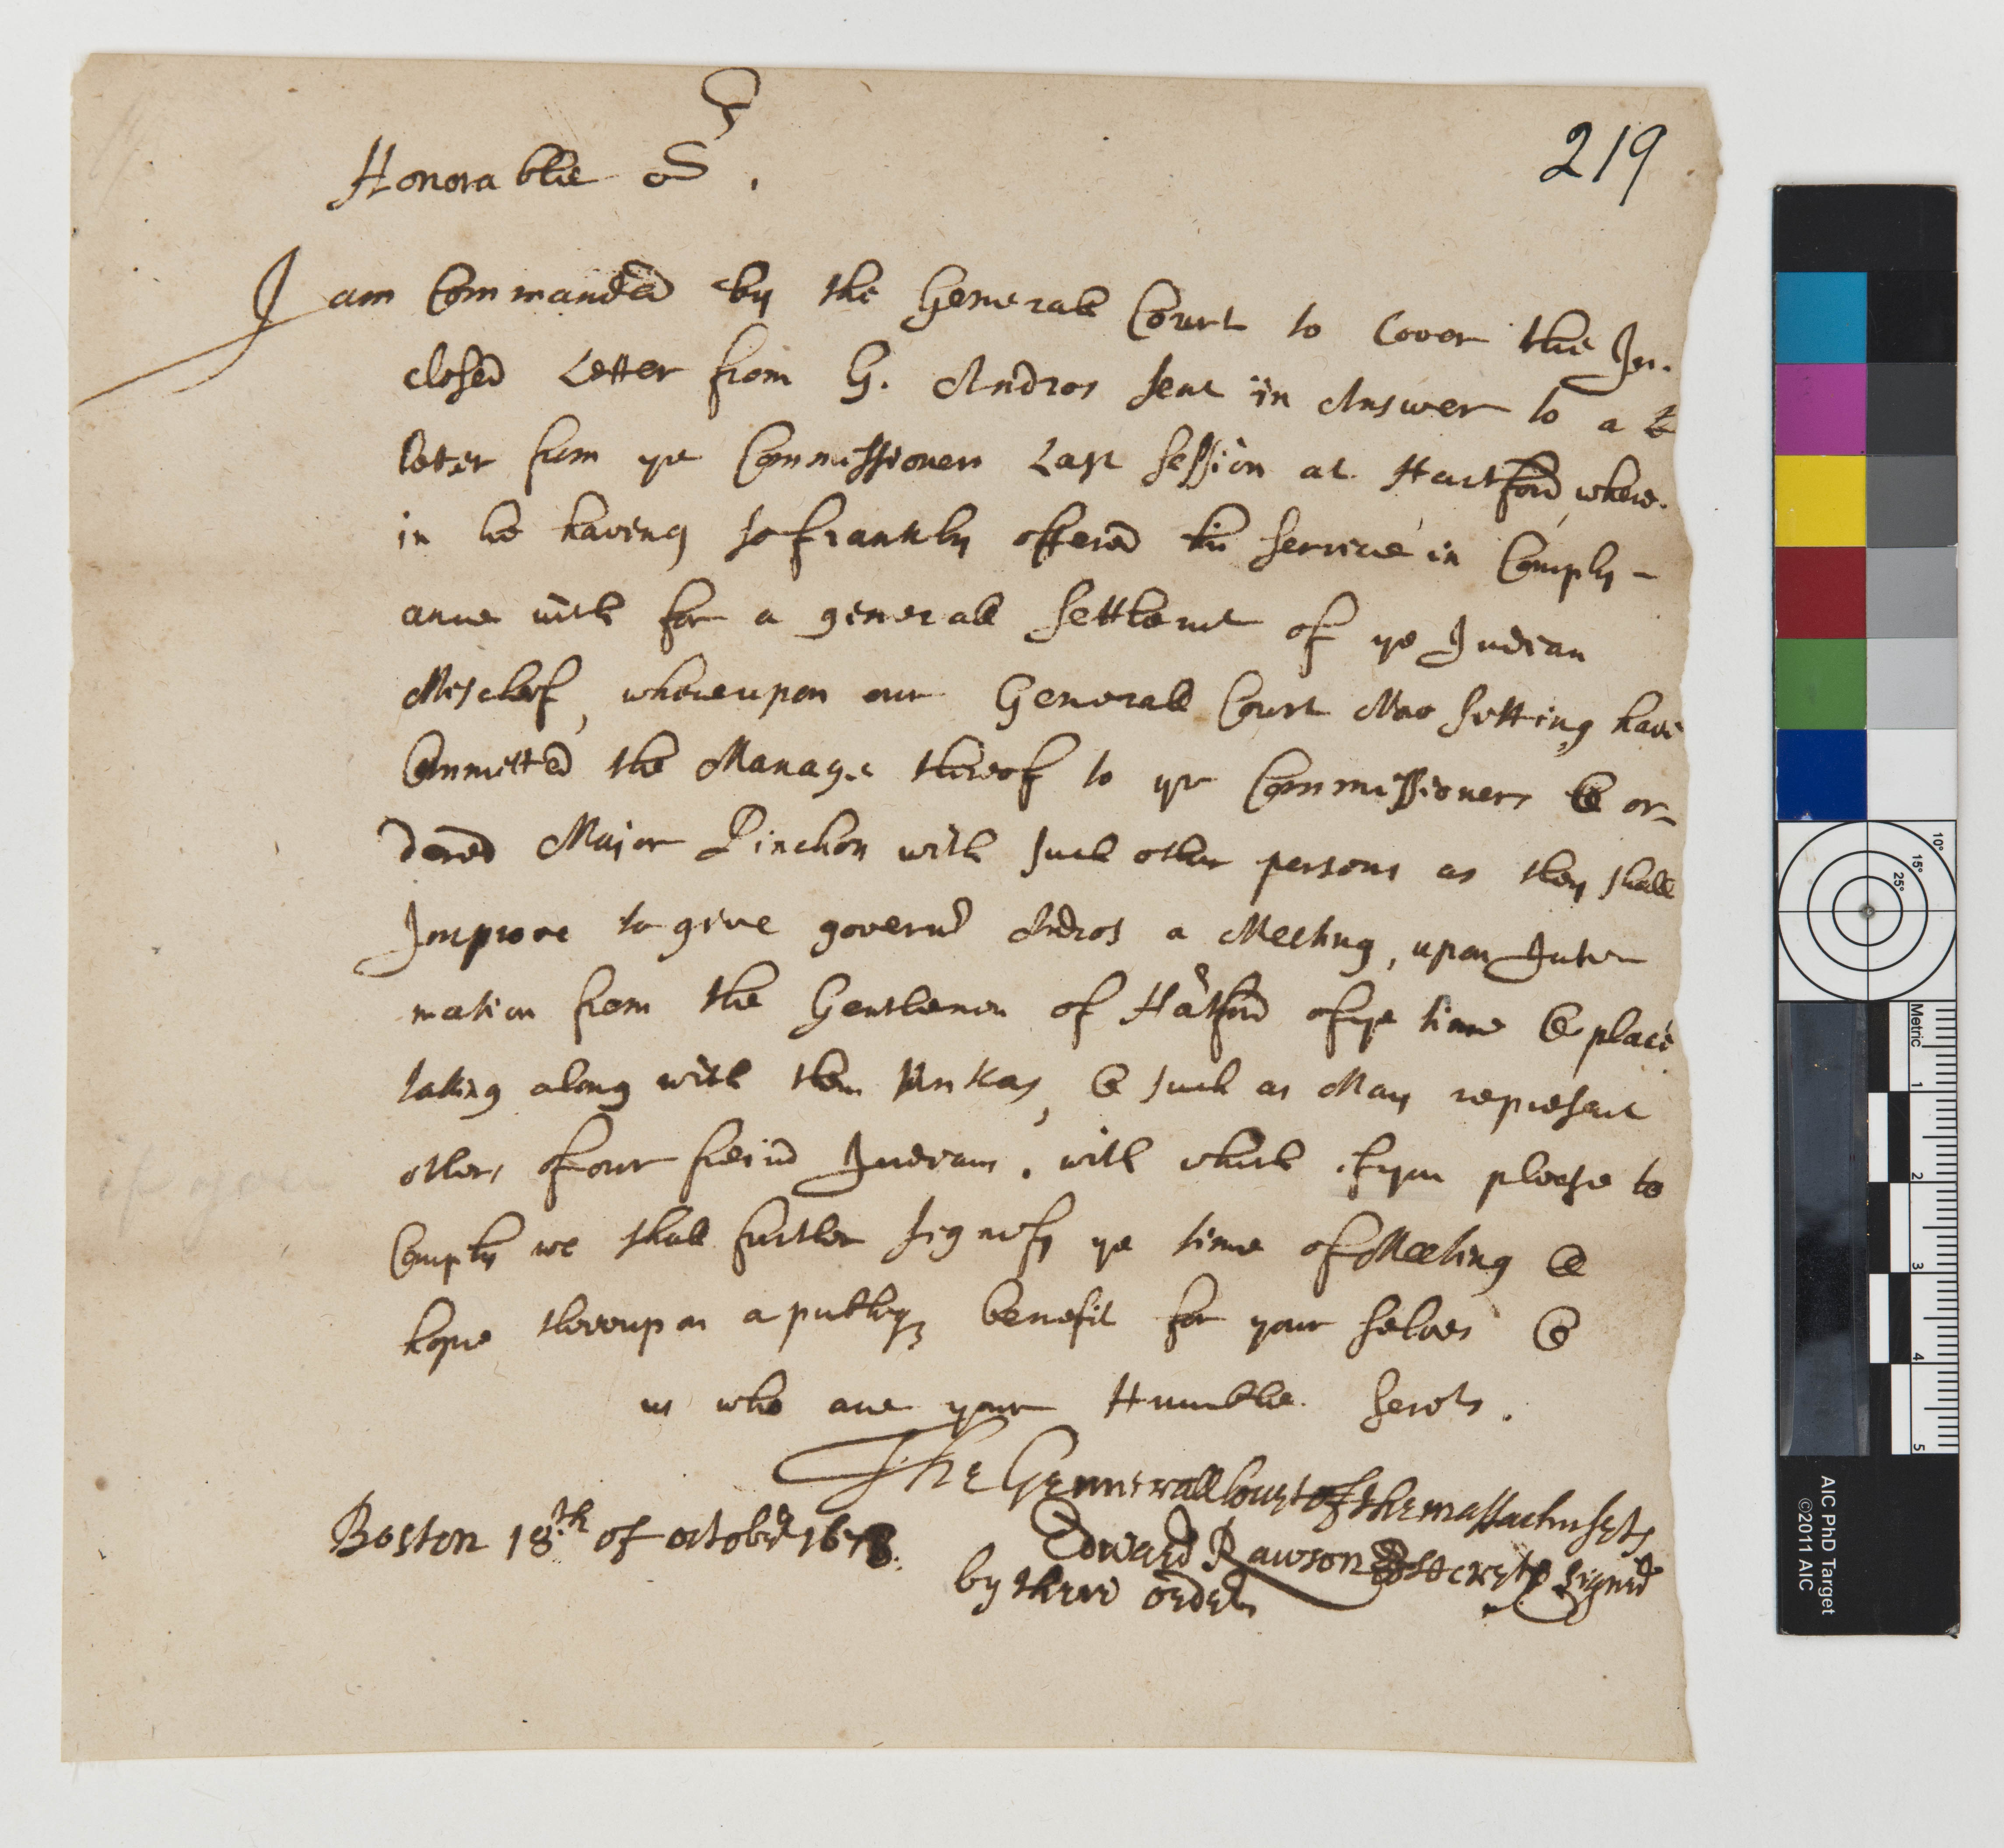 219
Honorable Sr.
I am Commanded by the Generall Court to Cover the In-
closed Letter from G. Andros sent in Answer to a
letter from ye Commissioners Last session at Hartford, where-
in he having so frankly offered his service in Comply-
ance with for a generall settlemt of ye Indian
Mischeif, whereupon our Generall Court Now sitting have
Committed the Manage thereof to ye Commissioners & or-
dered Major Pinchon with such other persons as they shall
Improve to give governr Andros a Meeting, upon Inti-
mation from the Gentlemen of Hartford of ye time & place
taking along with them Unkas, & such as May represent
others of our freind Indians. with which if you please to
Comply we shall further signify ye time of Meeting &
hope thereupon a publiq benefit for your selves &
us who are your Humble Servts.
The Gennerall Court of the massachusets
Edward Rawson Secrety Signed
Boston 18th of octobr 1678.
by their order
AIC PhD Target
©2011 AIC
Metric
1
2
3
4
5
10°
15°
25°